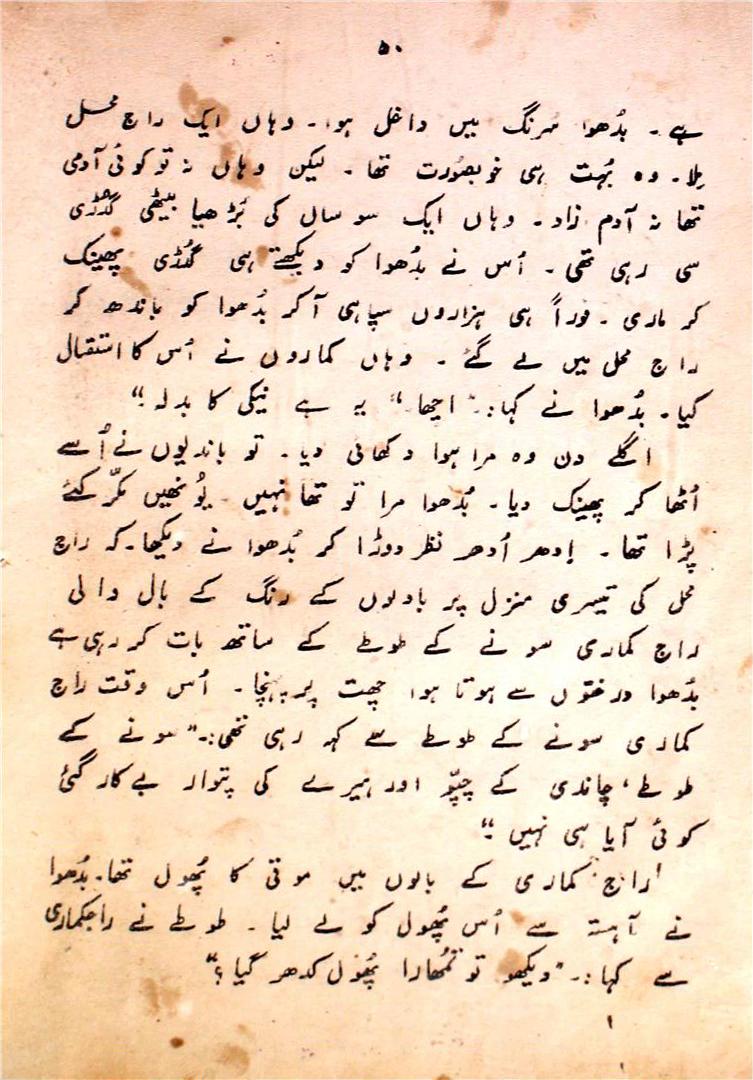 ۵۰
ہے۔ بُدھوا سُرنگ میں داخل ہوا۔ وہاں ایک راج محل
مِلا۔ وہ بُہت ہی خوبصُورت تھا۔ لیکن وہاں نہ تو کوئی آدمی
تھا نہ آدم زاد۔ وہاں ایک سو سال کی بُڑھیا بیٹھی گُدڑی
سی رہی تھی۔ اُس نے بُدھوا کو دیکھتے ہی گُدڑی پھینک
کر ماری۔ فوراً ہی ہزاروں سپاہی آکر بُدھوا کو باندھ کر
راج محل میں لے گئے۔ وہاں کماروں نے اُس کا استقبال
کیا۔ بُدھوا نے کہا:۔ "اچھا" یہ ہے نیکی کا بدلہ۔"
اگلے دن وہ مرا ہوا دکھائی دیا۔ تو باندیوں نے اُسے
اُٹھا کر پھینک دیا۔ بُدھوا مرا تو تھا نہیں۔ یُونھیں مکّر کئے
پڑا تھا۔ اِدھر اُدھر نظر دوڑا کر بُدھوا نے دیکھا۔ کہ راج
محل کی تیسری منزل پر بادلوں کے رنگ کے بال والی
راج کماری سونے کے طوطے کے ساتھ بات کر رہی ہے
بُدھوا درختوں سے ہوتا ہوا چھت پر پہنچا۔ اُس وقت راج
کماری سونے کے طوطے سے کہہ رہی تھی:۔ "سونے کے
طوطے، چاندی کے چپّو اور ہیرے کی پتوار بے کار گئی
کوئی آیا ہی نہیں۔"
راج کماری کے بالوں میں موتی کا پُھول تھا۔ بُدھوا
نے آہستہ سے اُس پُھول کو لے لیا۔ طوطے نے راجکماری
سے کہا:۔ "دیکھو تو تمُھارا پُھول کدھر گیا؟"